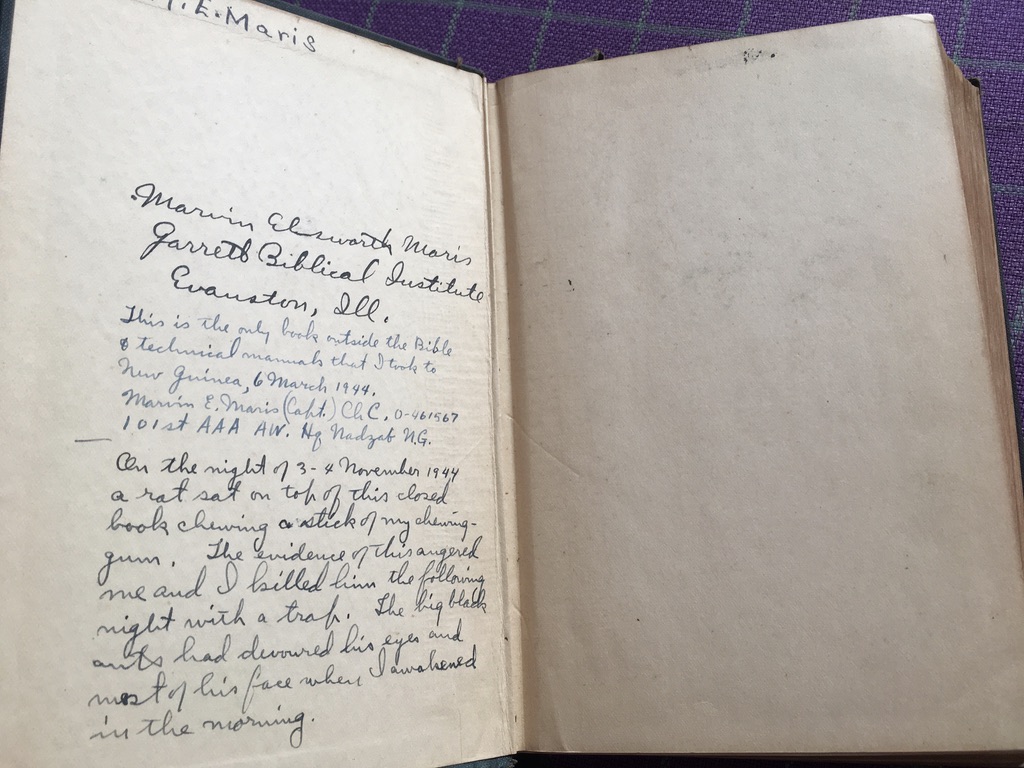 M.E.Maris
Marvin Elsworth Maris
Garrett Biblical Institute
Evanston, Ill.
This is the only book outside the Bible
& technical manuals that I took to
New Guinea, 6 March 1944.
Marvin E. Maris (Capt.) Ch.C. O-461567
101st AAA AW. Hq Nadzab N.G.
On the night of 3-4 November 1944
a rat sat on top of this closed
book chewing a stick of my chewing-
gum. The evidence of this angered
me and I killed him the following
night with a trap. The big black
ants had devoured his eyes and
most of his face when I awakened
in the morning.